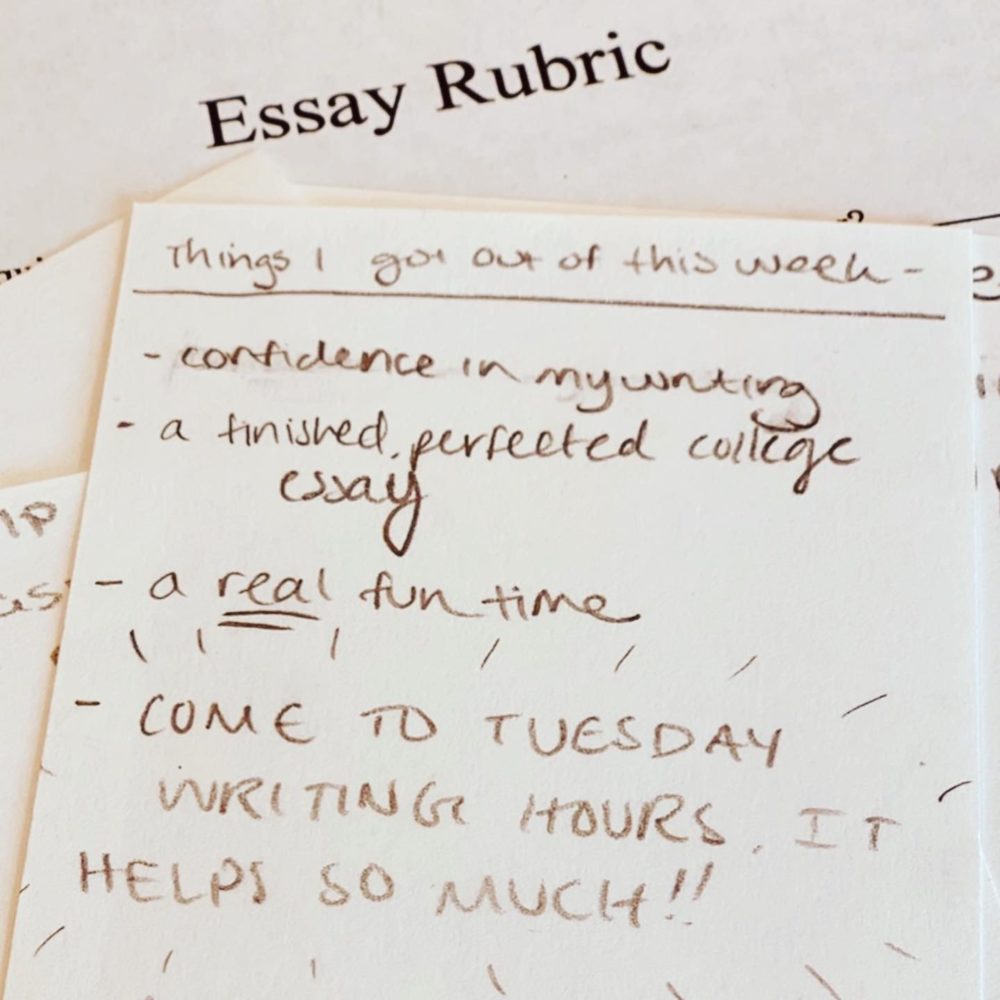 Essay Rubric
Things I got out of this week -
- confidence in my writing
- a finished, perfected college
essay
- a real fun time
- COME TO TUESDAY
WRITING HOURS. IT
HELPS SO MUCH!!